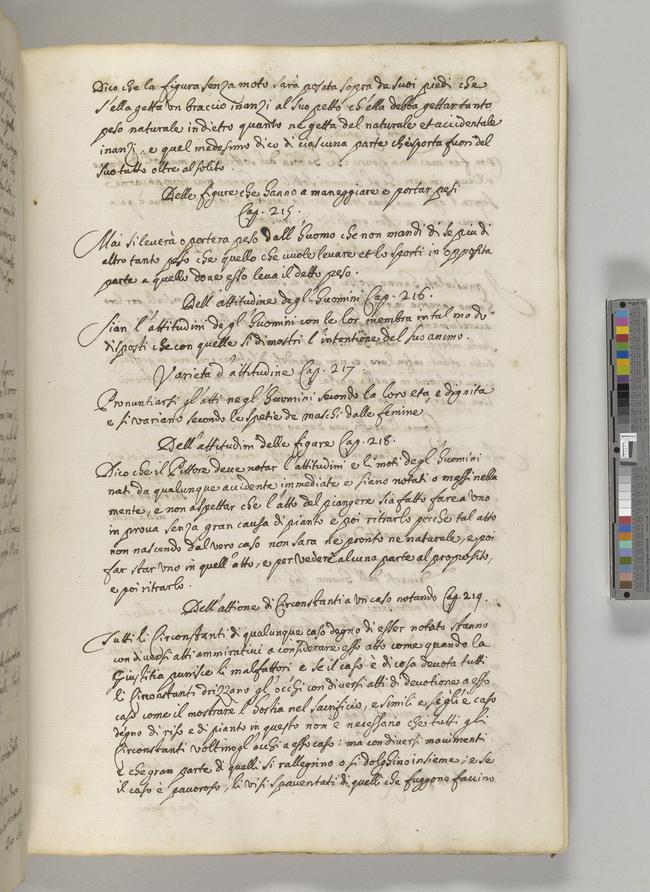 Dico che la figura senza moto sarà posata sopra de suoi piedi che
s'ella getta un braccio inanzi al suo petto ch'ella debba gettar tanto
peso naturale indietro quanto ne getta del naturale et accidentale
inanzi, e quel medesimo dico di ciascuna parte che sporta fuori del
suo tutto oltre al solito.
Delle figure che hanno a maneggiare e portar pesi
Cap. 215.
Mai si leverà o portera peso dall'huomo che non mandi di se piu di
altro tanto peso che quello che vuole levare et lo sporti in opposita
parte a quello doue esso leva il detto peso.
Dell'attitudine degl'huomini Cap. 216.
Sian l'attitudini degl'huomini con le lor membra in tal modo
disposti che con quelle si dimostri l'intentione del suo animo.
Varietà d'attitudine Cap. 217.
Pronuntiarsi gl'atti negl'huomini secondo la loro eta e dignita
e si variano secondo le spetie de maschi dalle femine
Dell'attitudini delle figure Cap. 218.
Dico che il Pittore deve notar l'attitudini e li moti degl'huomini
nati da qualunque accidente immediate e siano notati o messi nella
mente, e non aspettar che l'atto del piangere sia fatto fare a uno
in prova senza gran causa di pianto e poi ritrarlo perche tal atto
non nascendo dal vero caso non sara ne pronto ne naturale, e poi
far star uno in quell'atto, e per vedere alcuna parte al proposito,
e poi ritrarlo.
Dell'attione di Circonstanti a un caso notando Cap. 219.
Tutti li Circonstanti di qualunque caso degno di esser notato stanno
con diversi atti ammirativi a considerare esso atto come quando la
Giustitia punisce li malfattori e se il caso è di cosa devota tutti
li Circonstanti drizzano gl'occhi con diversi atti di devotione a esso
caso come il mostrare l'hostia nel sacrificio, e simili e segl'è caso
degno di riso e di pianto in questo non è necessario che tutti gli
Circonstanti voltino gl'occhi a esso caso: ma con diversi movimenti
e che gran parte di quelli si rallegrino o si dolghino insieme; e se
il caso è pavoroso, li visi spaventati di quelli che fuggone faccino